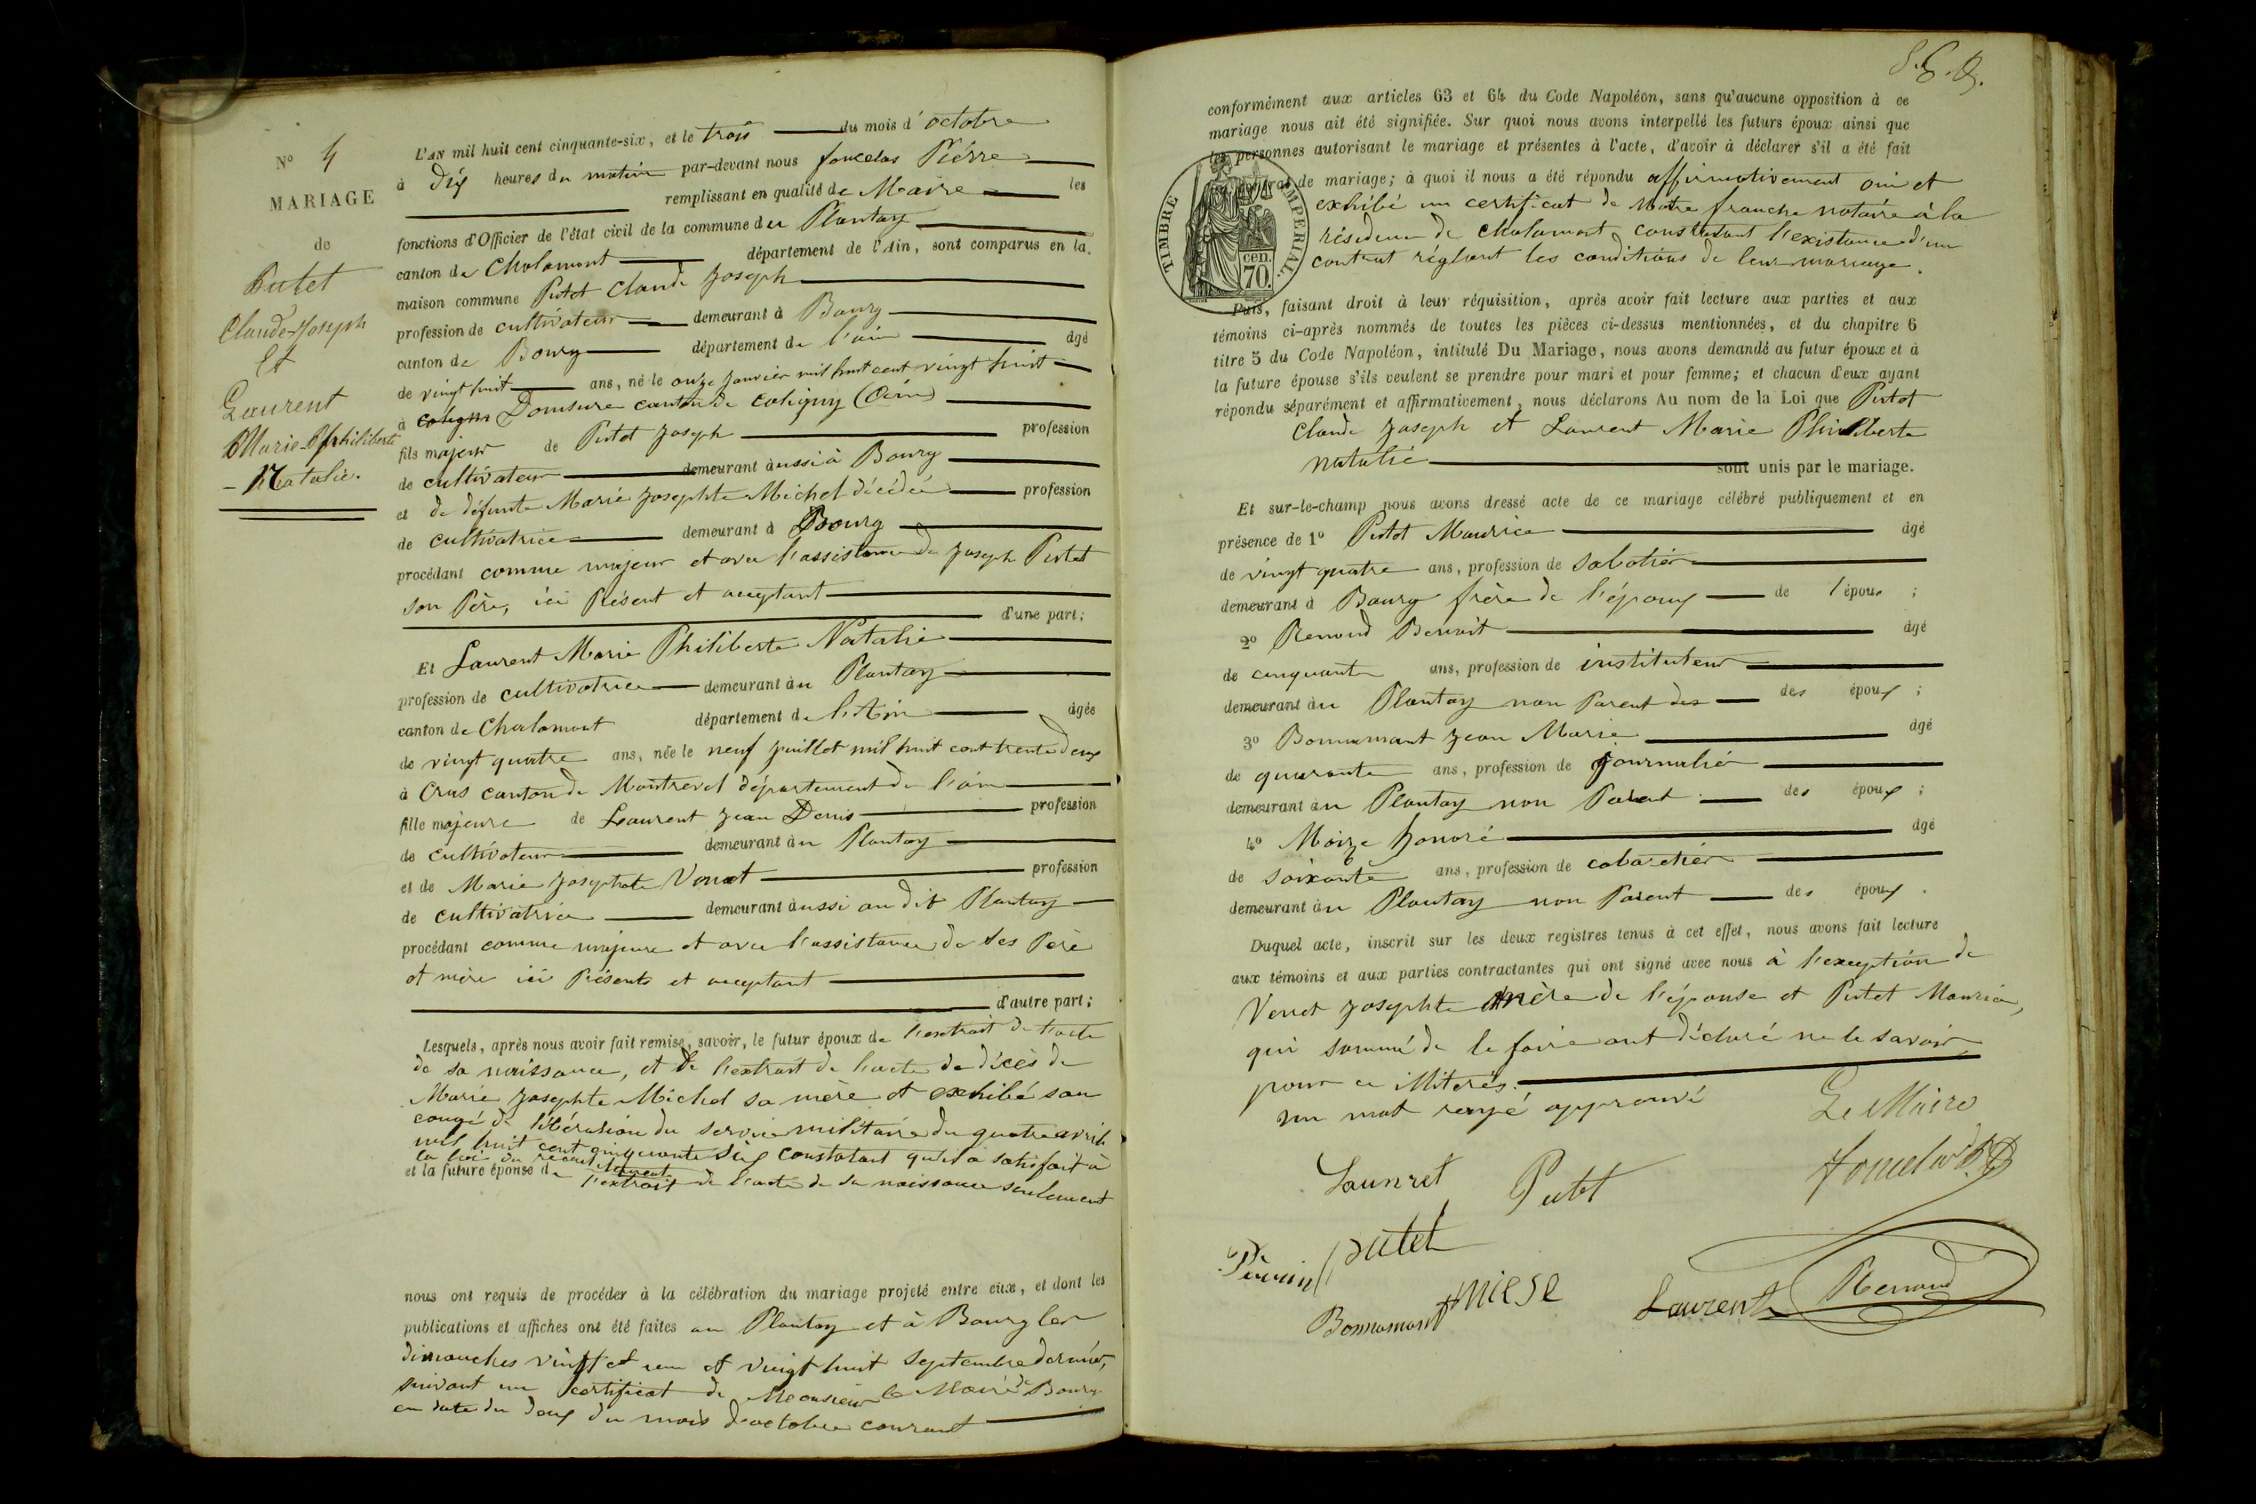 N° 4
MARIAGE
de
Putet
Claude Joseph
Et
Laurent
Marie Philiberte
Natalie.
L'AN mil huit cent cinquante-six, et le trois du mois d'octobre
à dix heures du matin par-devant nous Pierre
remplissant en qualité de Maire les
fonctions d'Officier de l'état civil de la commune du Plantay
canton de Chalamont département de l'Ain, sont comparus en la
maison commune Putet Claude Joseph
profession de cultivateur demeurant à Bourg
canton de Bourg département de l'ain âgé
de vingt huit ans, né le onze janvier mil huit cent vingt huit
à Domsure canton de Coligny (Ain)
fils majeur de Putet Joseph profession
de cultivateur demeurant aussi à Bourg
et de défunte Marie Josephte Michel décédée profession
de cultivatrice demeurant à Bourg
procédant comme majeur et avec l'assistance de Joseph Putet
son Père, ici Présent et acceptant
d'une part;
Et Laurent Marie Philiberte Natalie
profession de cultivatrice demeurant au Plantay
canton de Chalamont département de l'Ain âgée
de vingt quatre ans, née le neuf juillet mil huit cent trente deux
à Cras canton de Montrevel département de l'ain
fille majeure de Laurent Jean Denis profession
de cultivateur demeurant au Plantay
et de Marie Josephte Venet profession
de cultivatrice demeurant aussi au dit Plantay
procédant comme majeure et avec l'assistance de ses Père
et mère ici Présents et acceptant
d'autre part;
Lesquels, après nous avoir fait remise, savoir, le futur époux de l'extrait de l'acte
de sa naissance, et de l'extrait de l'acte de décès de
Marie Josephte Michel sa mère et exhibé son
congé de libération du service militaire du quatre avril
mil huit cent cinquante six constatant qu'il a satisfait à
la loi du recrutement
et la future épouse de l'extrait de l'acte de sa naissance seulement
nous ont requis de procéder à la célébration du mariage projeté entre eux, et dont les
publications et affiches ont été faites au Plantay et à Bourg les
dimanches vingt et un et vingt huit septembre dernier,
suivant un certificat de Monsieur le Maire de Bourg
en date du deux du mois d'octobre courant
conformément aux articles 63 et 64 du Code Napoléon, sans qu'aucune opposition à ce
mariage nous ait été signifiée. Sur quoi nous avons interpellé les futurs époux ainsi que
les personnes autorisant le mariage et présentes à l'acte, d'avoir à déclarer s'il a été fait
contrat de mariage; à quoi il nous a été répondu affirmativement oui et
exhibé un certificat de Maitre franche notaire à la
résidence de Chalamont constatant l'existance d'un
contrat réglant les conditions de leur mariage.
TIMBRE IMPÉRIAL.
cen.
70.
Puis, faisant droit à leur réquisition, après avoir fait lecture aux parties et aux
témoins ci-après nommés de toutes les pièces ci-dessus mentionnées, et du chapitre 6
titre 5 du Code Napoléon, intitulé Du Mariage, nous avons demandé au futur époux et à
la future épouse s'ils veulent se prendre pour mari et pour femme; et chacun d'eux ayant
répondu séparément et affirmativement, nous déclarons Au nom de la Loi que Putet
Claude Joseph et Laurent Marie Philiberte
natalie sont unis par le mariage.
Et sur-le-champ nous avons dressé acte de ce mariage célébré publiquement et en
présence de 1° Putet Maurice âgé
de vingt quatre ans, profession de sabotier
demeurant à Bourg frère de l'époux de l'époux ;
2° Renoud Benoit âgé
de cinquante ans, profession de instituteur
demeurant au Plantay non Parent des des époux ;
3° Bonnamant Jean Marie âgé
de quarante ans, profession de journalier
demeurant au Plantay non Parent des époux ;
4° Moize honoré âgé
de soixante ans, profession de cabaretier
demeurant au Plantay non Parent des époux .
Duquel acte, inscrit sur les deux registres tenus à cet effet, nous avons fait lecture
aux témoins et aux parties contractantes qui ont signé avec nous à l'exception de
Venet Josephte mère de l'épouse et Putet Maurice,
qui sommé de le faire ont déclaré ne le savoir
pour ce illiterés.
un mot rayé approuvé
Le Maire
Launret
Putet
putet
Bonnamant
Laurent
Renoud